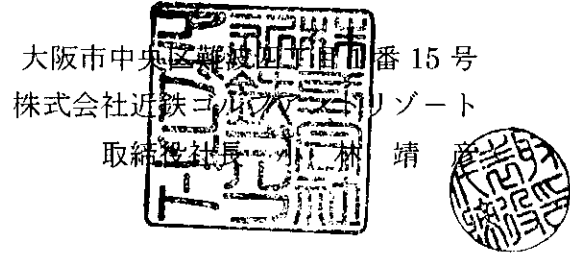 大阪市中央区難波四丁目 番 15 号
株式会社近鉄ゴルフアンドリゾート
取締役社長 小 林 靖 彦